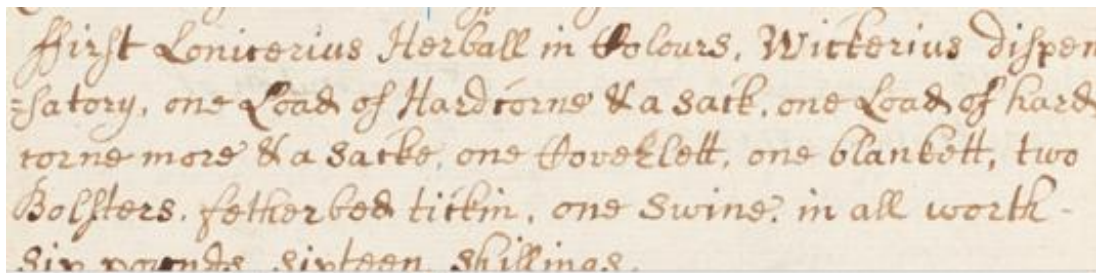 ffirst Lonicerius Herball in Colours, Wickerius dispen
=satory, one Load of Hardcorne & a sack, one Load of hard
corne more & a sacke, one Coverlett, one blankett, two
Bolsters, fetherbed tickin, one Swine, in all worth -
six pounds sixteen shillings.